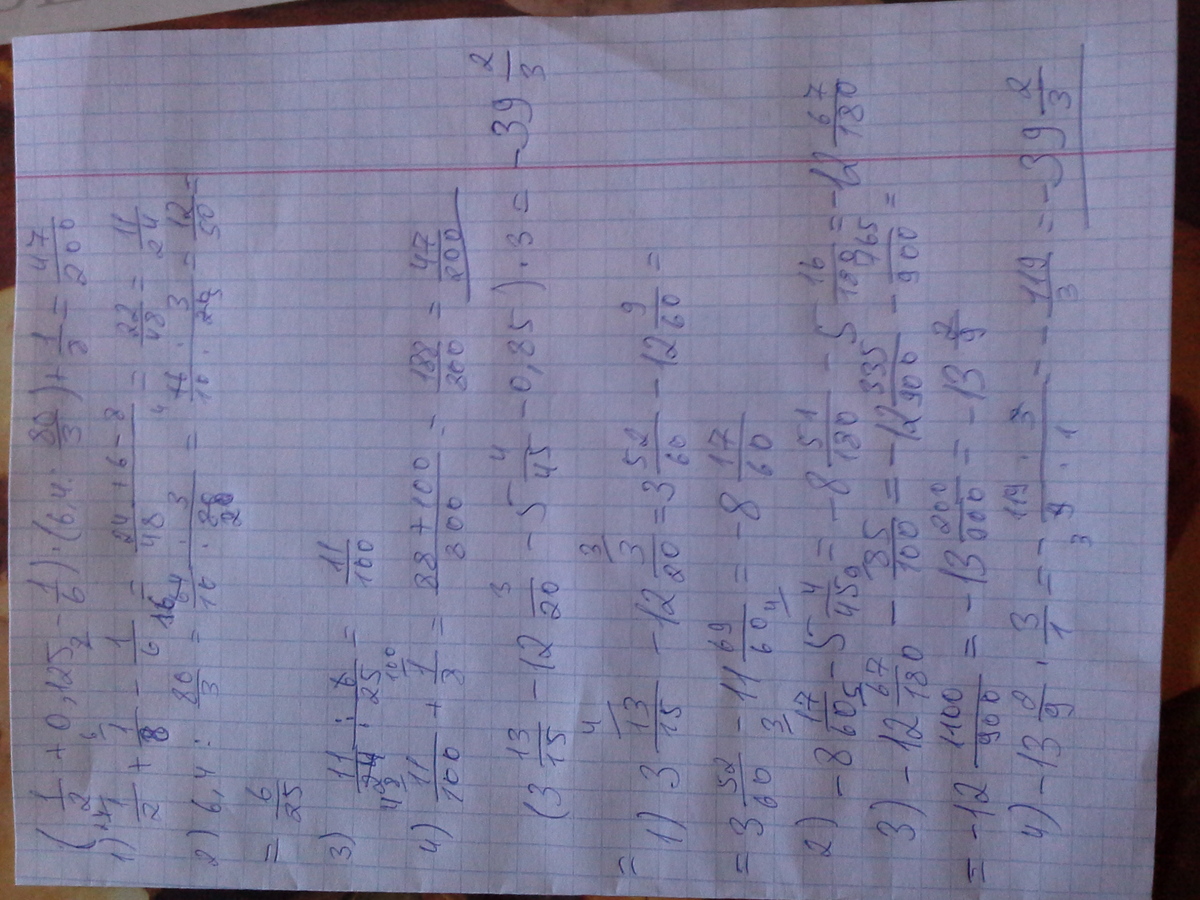 (1/2 + 0,125 - 1/6) : (6,4 : 80/3) + 1/2 = 47/200
1) 1/2 + 1/8 - 1/6 = 24 + 6 - 8 / 48 = 22/48 = 11/24
2) 6,4 : 80/3 = 64 · 3 / 10 · 80 = 16 · 3 / 10 · 20 = 12/50 =
= 6/25
3) 11/24 : 6/25 = 11/100
4) 11/100 + 1/8 = 88 + 100 / 800 = 188/800 = 47/200
(3 13/15 - 12 3/20 - 5 4/45 - 0,85) · 3 = - 39 2/3
1) 3 13/15 - 12 3/20 = 3 52/60 - 12 9/60 =
= 3 52/60 - 11 69/60 = - 8 17/60
2) - 8 17/60 - 5 4/45 = - 8 51/180 - 5 16/180 = - 12 67/180
3) - 12 67/180 - 85/100 = - 12 335/900 - 765/900 =
= - 12 1100/900 = - 13 200/900 = - 13 2/9
4) - 13 2/9 · 3/1 = - 119 · 3 / 9 · 1 = - 119/3 = - 39 2/3